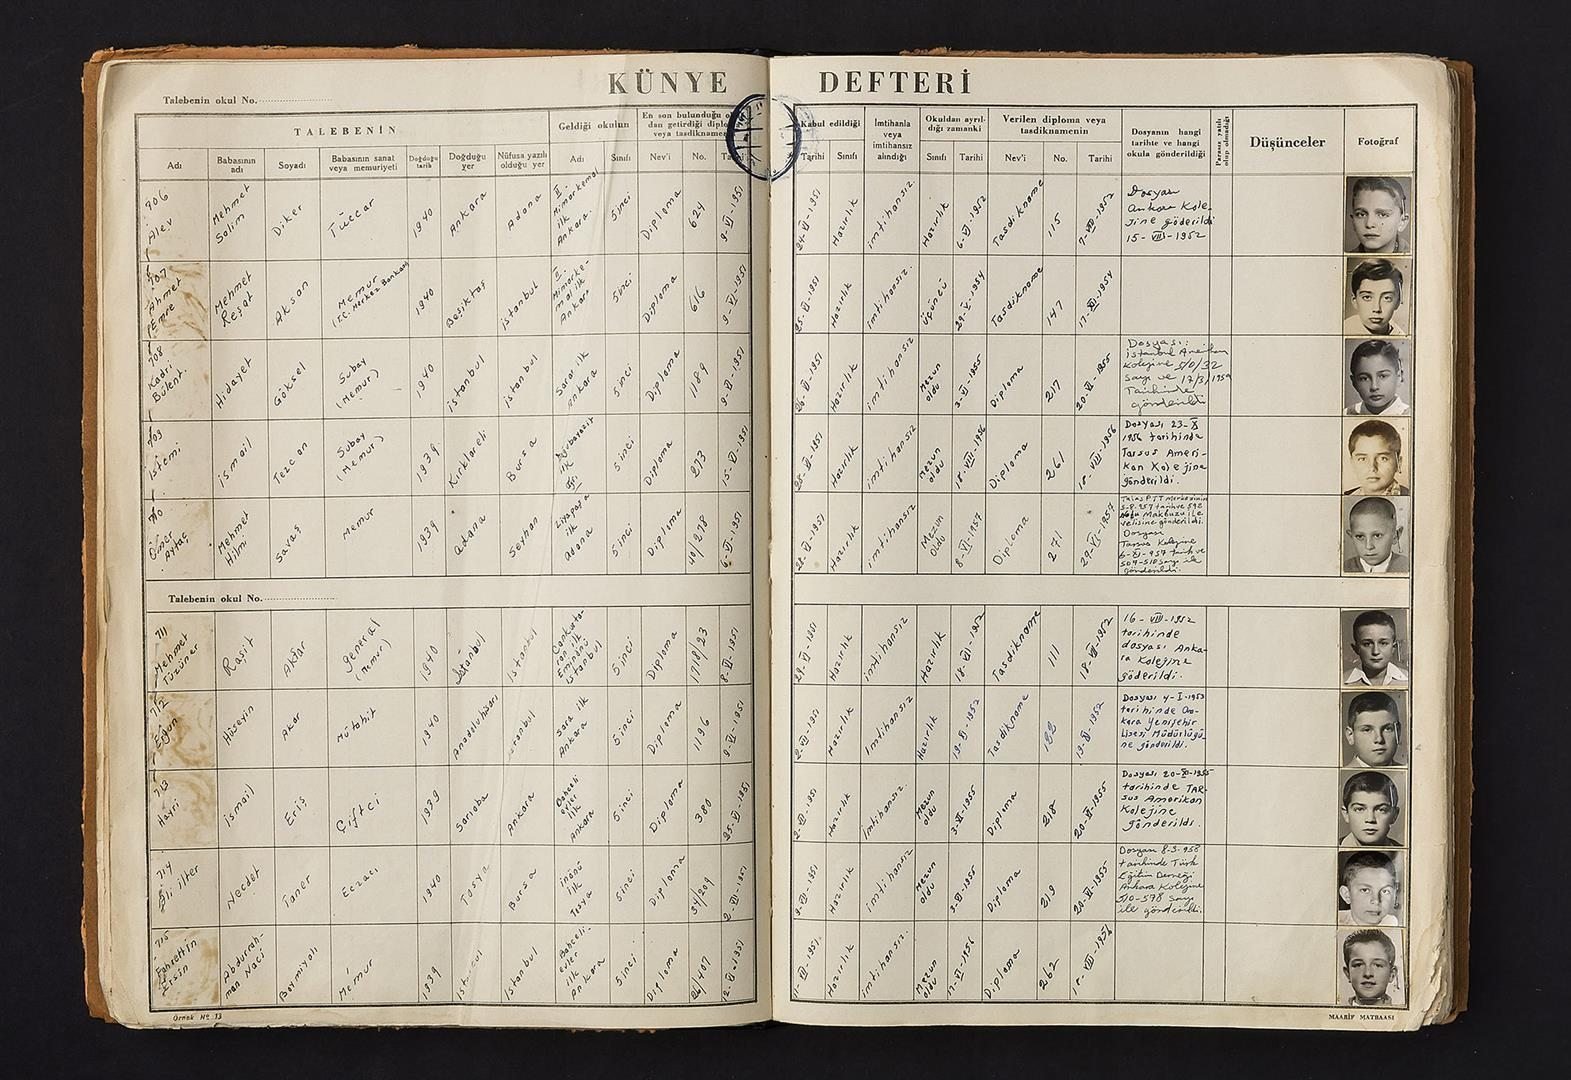 KÜNYE DEFTERİ
Talebenin okul No.
TALEBENİN
Geldiği okulun
En son bulunduğu
dan getirdiği
veya tasdiknamenin
Kabul edildiği
İmtihanla veya imtihansız alındığı
Okuldan ayrıldığı zamanki
Verilen diploma veya tasdiknamenin
Dosyanın hangi tarihte ve hangi okula gönderildiği
Parasız yatılı olup olmadığı
Düşünceler
Fotoğraf
Adı Babasının adı Soyadı Babasının sanat veya memuriyeti Doğduğu tarih Doğduğu yer Nüfusa yazılı olduğu yer Adı Sınıfı Nev'i No. Tarihi Sınıfı Sınıfı Tarihi Nev'i No. Tarihi
706 Alev Mehmet Salim Diker Tüccar 1940 Ankara Adana II. Mimarkemal ilk Ankara. 5inci Diploma 624 9-VI-1951 Hazırlık imtihansız. Hazırlık 6-VI-1952 Tasdikname 115 7-VIII-1952 Dosyası Ankara Kolejine göderildi 15-VIII-1952
707 Ahmet Emre Mehmet Reşat Akson Memur (T.C. Merkez Bankası) 1940 Beşiktaş istanbul II. Mimarkemal ilk Ankara 5inci Diploma 616 9-VI-1951 Hazırlık imtihansız. Üçüncü Tasdikname 147
708 Kadri Bülent. Hidayet Göksel Subay (Memur) 1940 istanbul istanbul Sarar ilk Ankara 5inci Diploma 1189 9-VI-1951 Hazırlık imtihansız Mezun oldu 3-VI-1955 Diploma 217 20-VI-1955 Dosyası: istanbul Amerikan Kolejine sayı ve Tarihinde gönderildi
709 ismail Tezcan Subay (Memur) 1939 Kırklareli Bursa ilk 5inci Diploma 273 15-VI-1951 Hazırlık imtihansız Mezun oldu 18-VIII-1956 Diploma 261 18-VIII-1956 Dosyası 23-X 1956 tarihinde Tarsus Amerikan Kolejine gönderildi.
710 Ömer Aytaç Mehmet Hilmi Savaş Memur 1939 Adana Seyhan ilk Adana 5inci Diploma 40/278 6-VI-1951 Hazırlık imtihansız Mezun Oldu 8-VI-1957 Diploma 271 29-VI-1957 Talas PTT Merkezinin Makbuzu ile velisine gönderildi. Dosyası Tarsus Kolejine tarih ve 509-510 sayı ile gönderildi.
Talebenin okul No.
711 Mehmet Tüzüner Raşit Akfar general (Memur) 1940 istanbul istanbul ilk Eminönü istanbul 5inci Diploma 1718/23 8-VI-1951 Hazırlık imtihansız Hazırlık Tasdikname 111 18-VIII-1952 16-VIII-1952 tarihinde dosyası Ankara Kolejine göderildi.
712 Hüseyin Akar Mütahit 1940 Anadoluhisarı istanbul Sara ilk Ankara 5inci Diploma 1196 9-VI-1951 Hazırlık imtihansız Hazırlık Tasdikname Dosyası 4-I-1953 tarihinde Ankara Yenişehir Lisesi Müdürlüğüne gönderildi.
713 Hayri ismail Eriş Çiftçi 1939 Ankara Bahçelievler ilk Ankara 5inci Diploma 380 25-VI-1951 Hazırlık imtihansız. Mezun oldu 3-VI-1955 Diploma 218 20-VI-1955 Dosyası tarihinde TARSUS Amerikan Kolejine gönderildi.
714 Necdet Taner Eczacı 1940 Tosya Bursa inönü ilk Tosya 5inci Diploma 34/209 Hazırlık imtihansız Mezun oldu 3-VI-1955 Diploma 219 20-VI-1955 Dosyası tarihinde Türk Eğitim Derneği Ankara Kolejine 510-578 sayı ile gönderildi.
715 Fahrettin Ersin Abdurrahman Naci Beymiyalı Memur 1939 istanbul istanbul Bahçelievler ilk Ankara 5inci Diploma 26/407 12-VI-1951 Hazırlık imtihansız. Mezun oldu Diploma 262
Örnek No 13
MAARİF MATBAASI